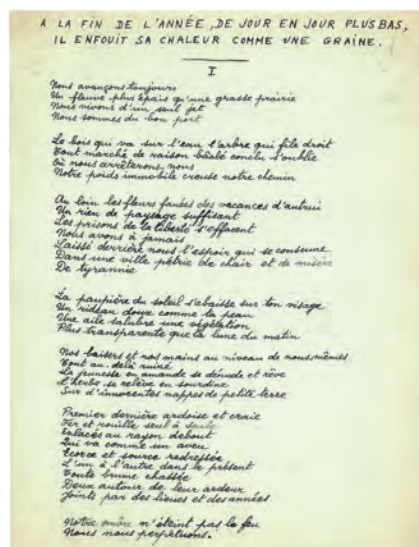 A LA FIN DE L'ANNÉE, DE JOUR EN JOUR PLUS BAS,
IL ENFOUIT SA CHALEUR COMME UNE GRAINE.
I
Nous avançons toujours
Un fleuve plus épais qu'une grasse prairie
Nous vivons d'un seul jet
Nous sommes du bon port
Le bois qui va sur l'eau l'arbre qui file droit
Tout marché de raison bâclé conclu s'oublie
Où nous arrêterons-nous
Notre poids immobile creuse notre chemin
Au loin les fleurs fanées des vacances d'autrui
Un rien de paysage suffisant
Les prisons de la liberté s'effacent
Nous avons à jamais
Laissé derrière nous l'espoir qui se consume
Dans une ville pétrie de chair et de misère
De tyrannie
La paupière du soleil s'abaisse sur ton visage
Un rideau doux comme la peau
Une aile salubre une végétation
Plus transparente que la lune du matin
Nos baisers et nos mains au niveau de nous-mêmes
Tout au-delà ruiné
La jeunesse en amande se dénude et rêve
L'herbe se relève en sourdine
Sur d'innocentes nappes de petite terre
Premier dernière ardoise et craie
Fer et rouille seul à seule
Enlacés au rayon debout
Qui va comme un aveu
Ecorce et source redressée
L'un à l'autre dans le présent
Toute brume chassée
Deux autour de leur ardeur
Joints par des lieues et des années
Notre ombre n'éteint pas le feu
Nous nous perpétuons.